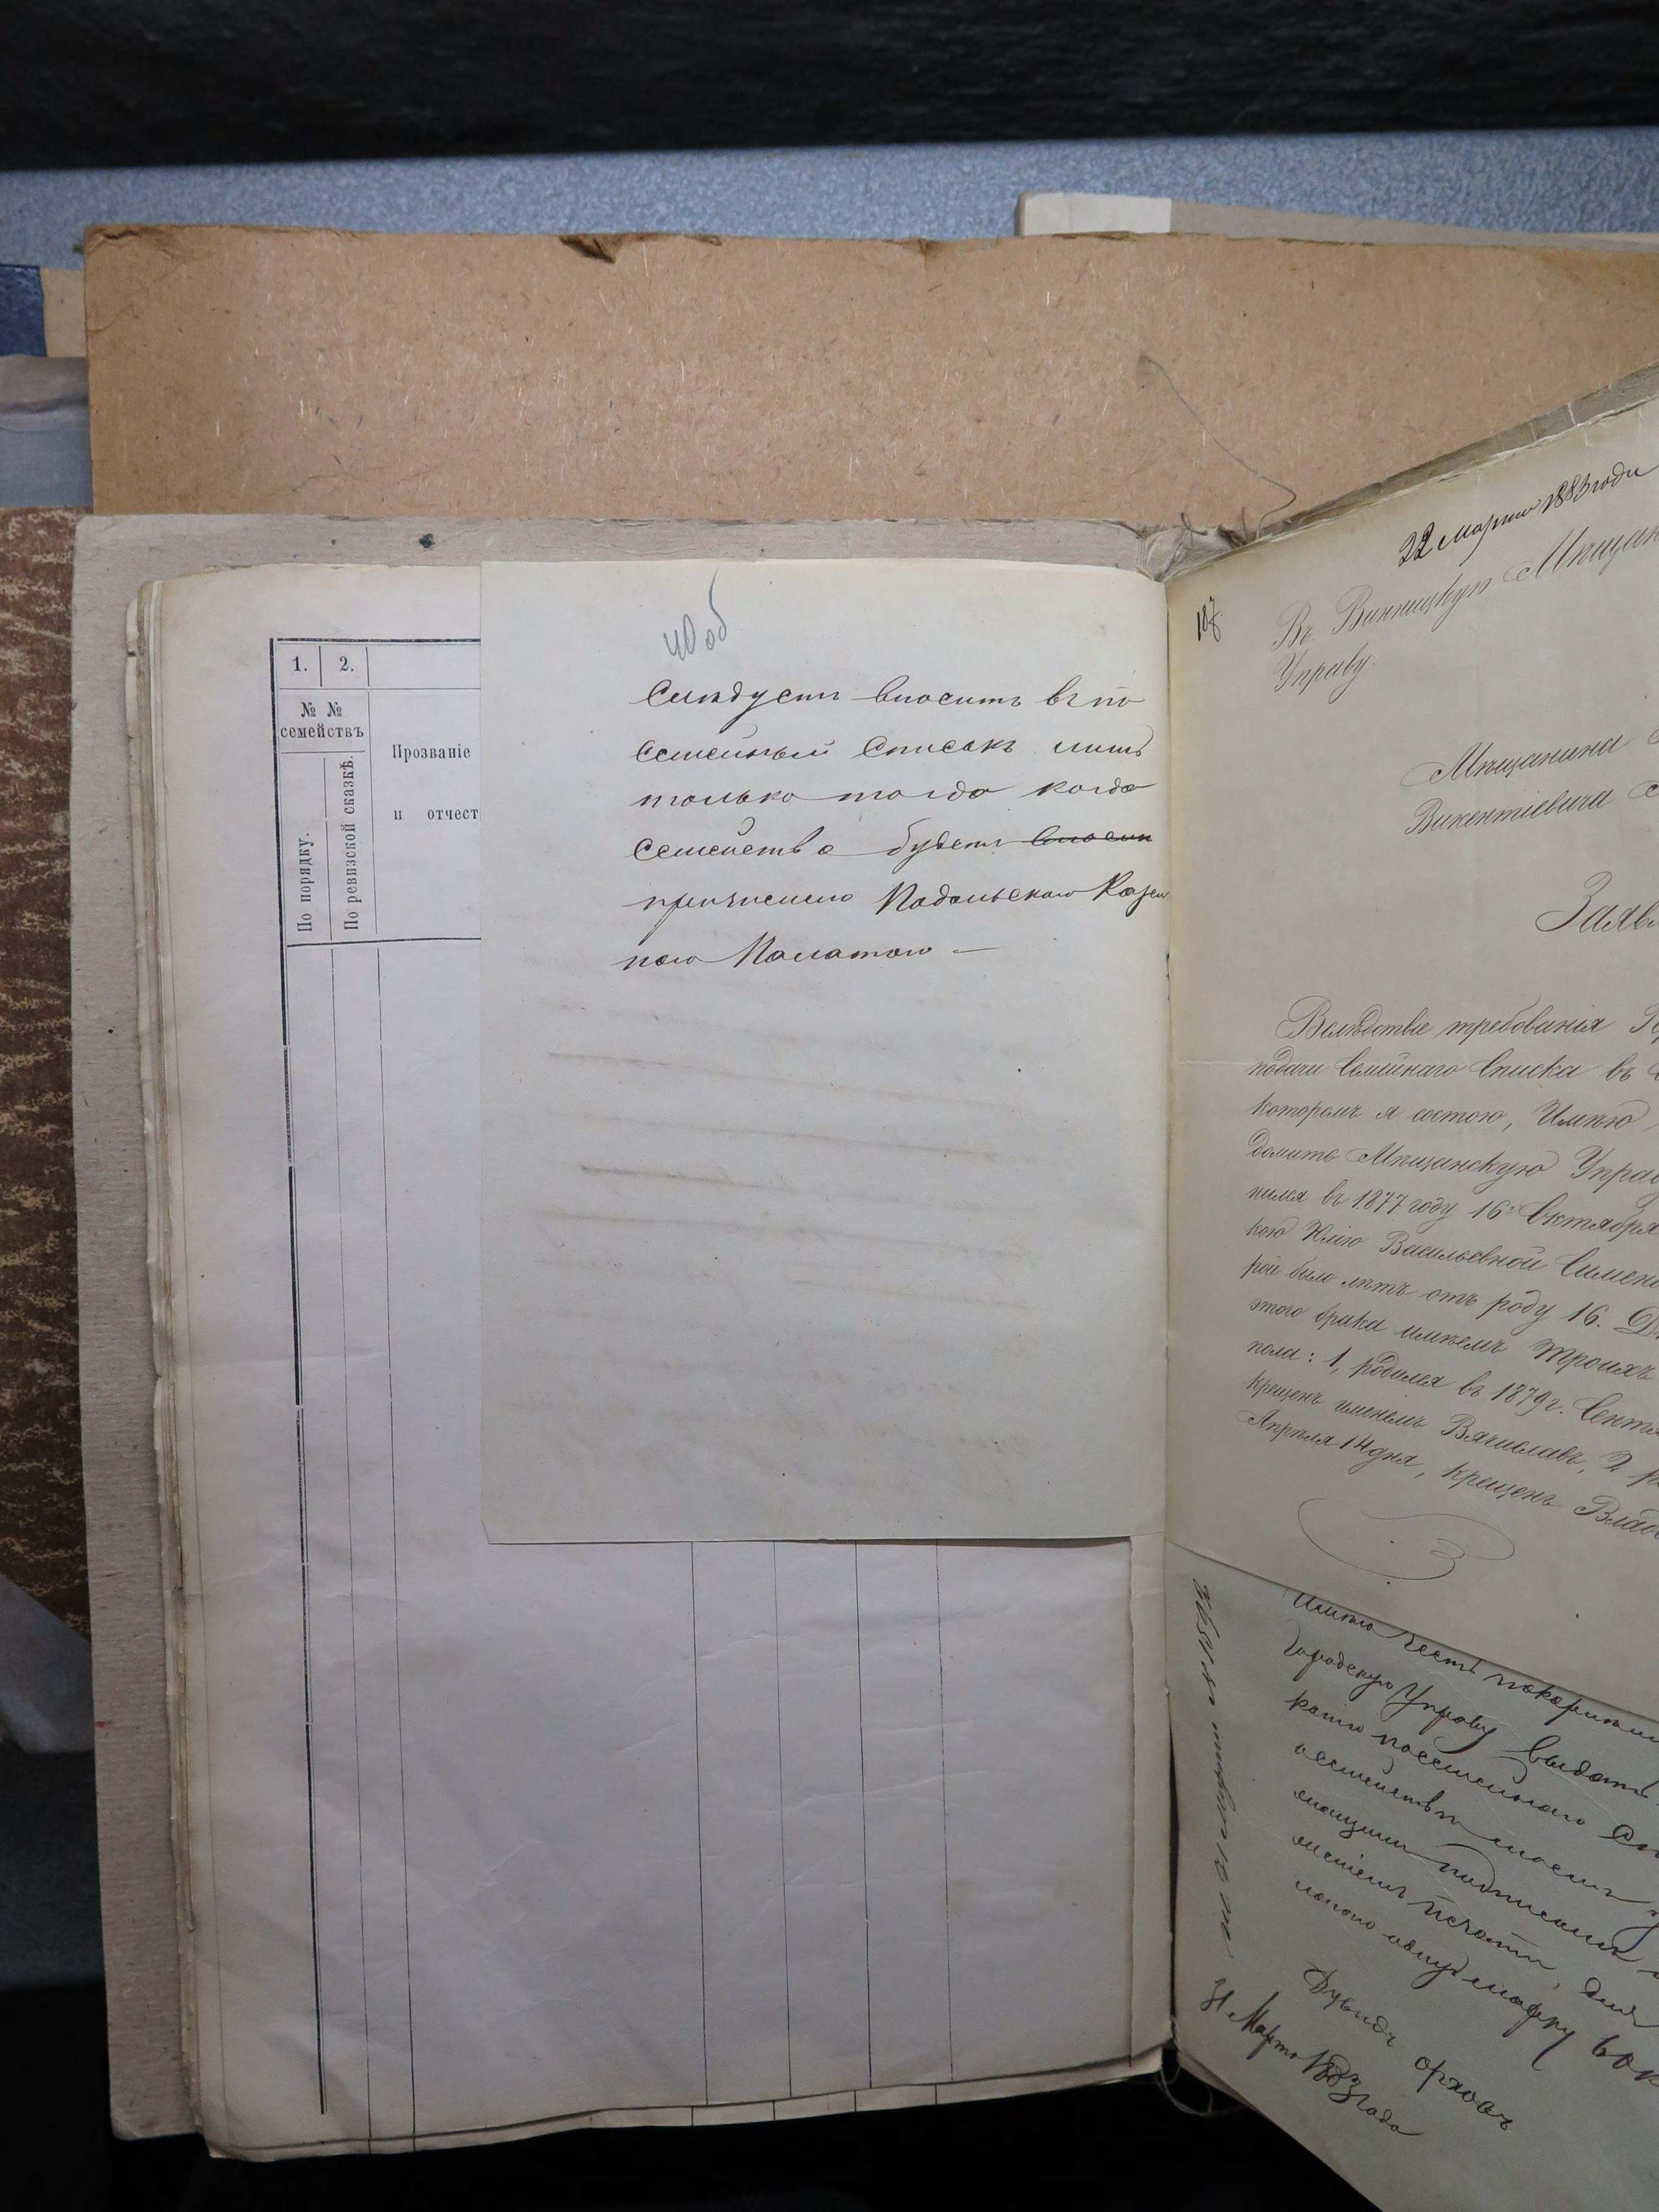 1. 2.
№ №
семействъ
По порядку.
По ревизской сказкѣ.
Прозваніе
и отчест
40 об
Слѣдуетъ вносить въ по
семейный списокъ лишь
только тогда когда
семейство будетъ вносим
причислено Подольскою Казен
ною Палатою —
22 Марта 1883 года
187
Въ Винницкую Мѣщан
Управу.
Мѣщанина
Викентіевича
Заявл
Вслѣдствіе требованія
подачи Семейнаго Списка въ
которомъ я состою, Имѣю
домить Мѣщанскую Управ
нился въ 1877 году 16го Октября
кою Юлію Васильевной Симен
рой было лѣтъ отъ роду 16.
этого брака имѣемъ троихъ
пола: 1, родился въ 1879 г. Сентя
крещенъ именемъ Вячиславъ, 2 р
Апрѣля 14 дня, крещенъ Влад
Имѣю честь покорнѣй
Городскую Управу выдать
копію посемейнаго Сп
семействѣ моемъ
подписями
печати, для
марку
31 Марта 1883 года